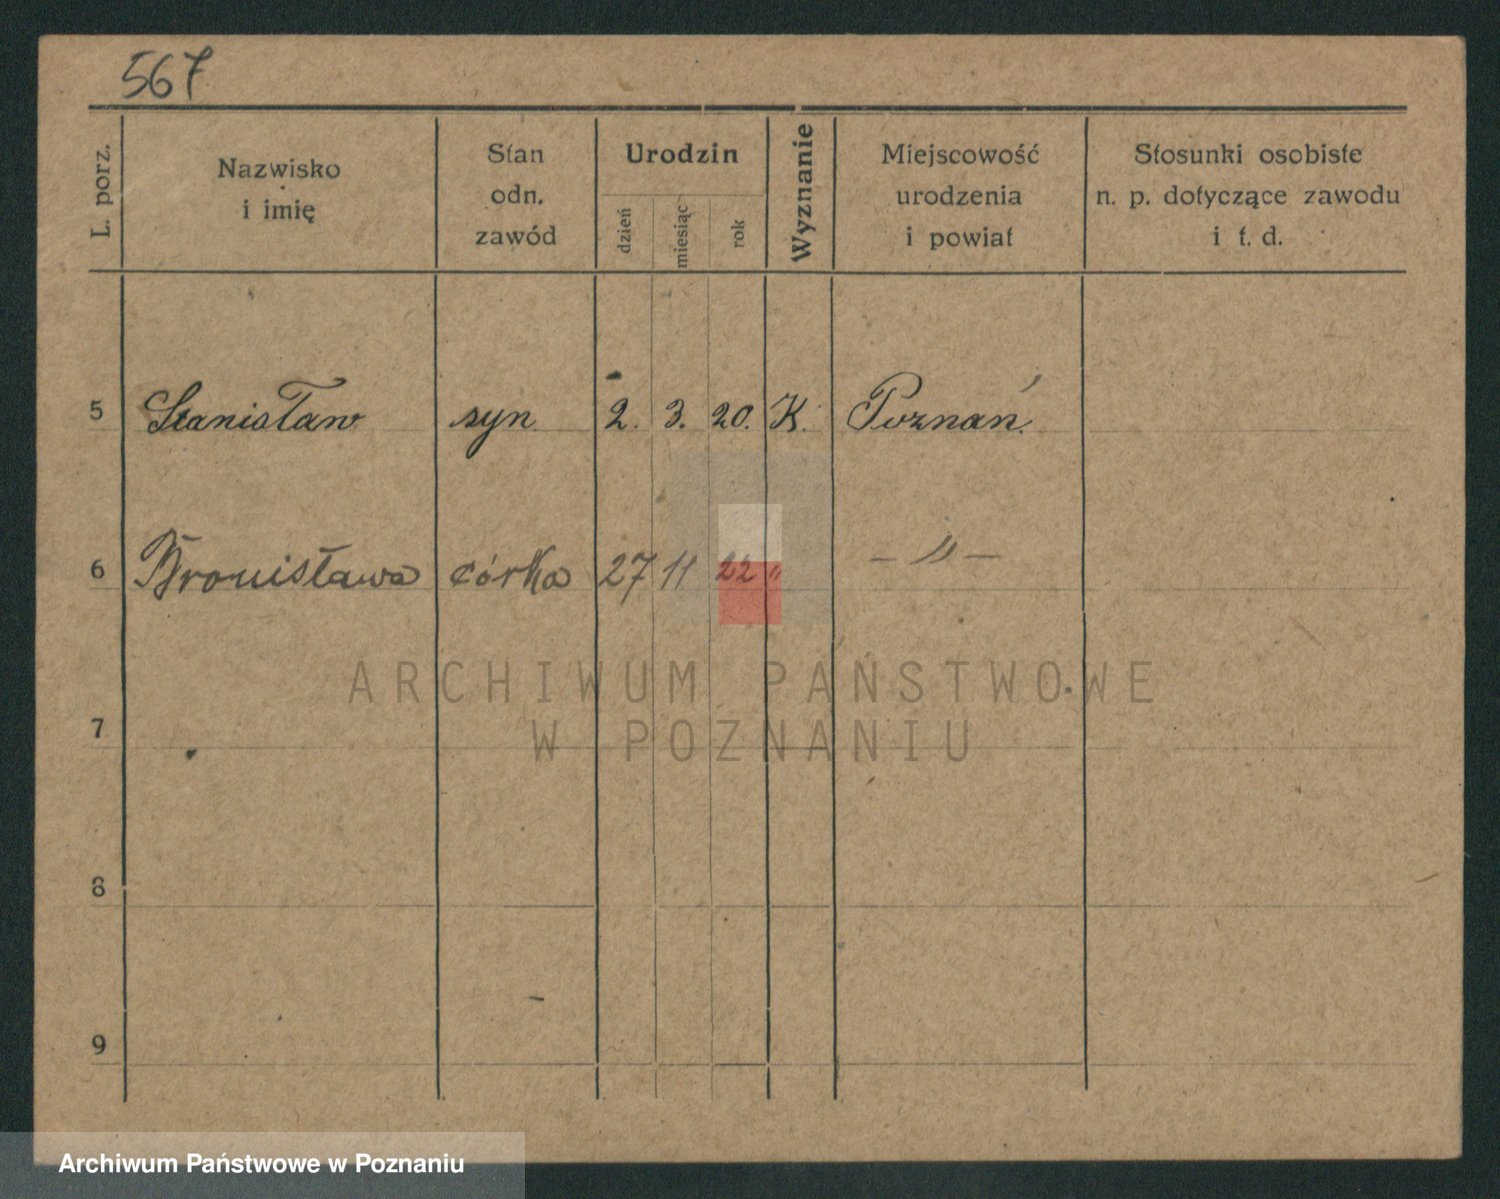 567
L. porz.
Nazwisko
i imię
Stan
odn.
zawód
Urodzin
dzień
miesiąc
rok
Wyznanie
Miejscowość
urodzenia
i powiat
Stosunki osobiste
n. p. dotyczące zawodu
i t. d.
5 Stanisław syn 2. 3. 20. K. Poznań.
6 Bronisława córka 27 11 22 " — " —
7
8
9
ARCHIWUM PAŃSTWOWE
W POZNANIU
Archiwum Państwowe w Poznaniu